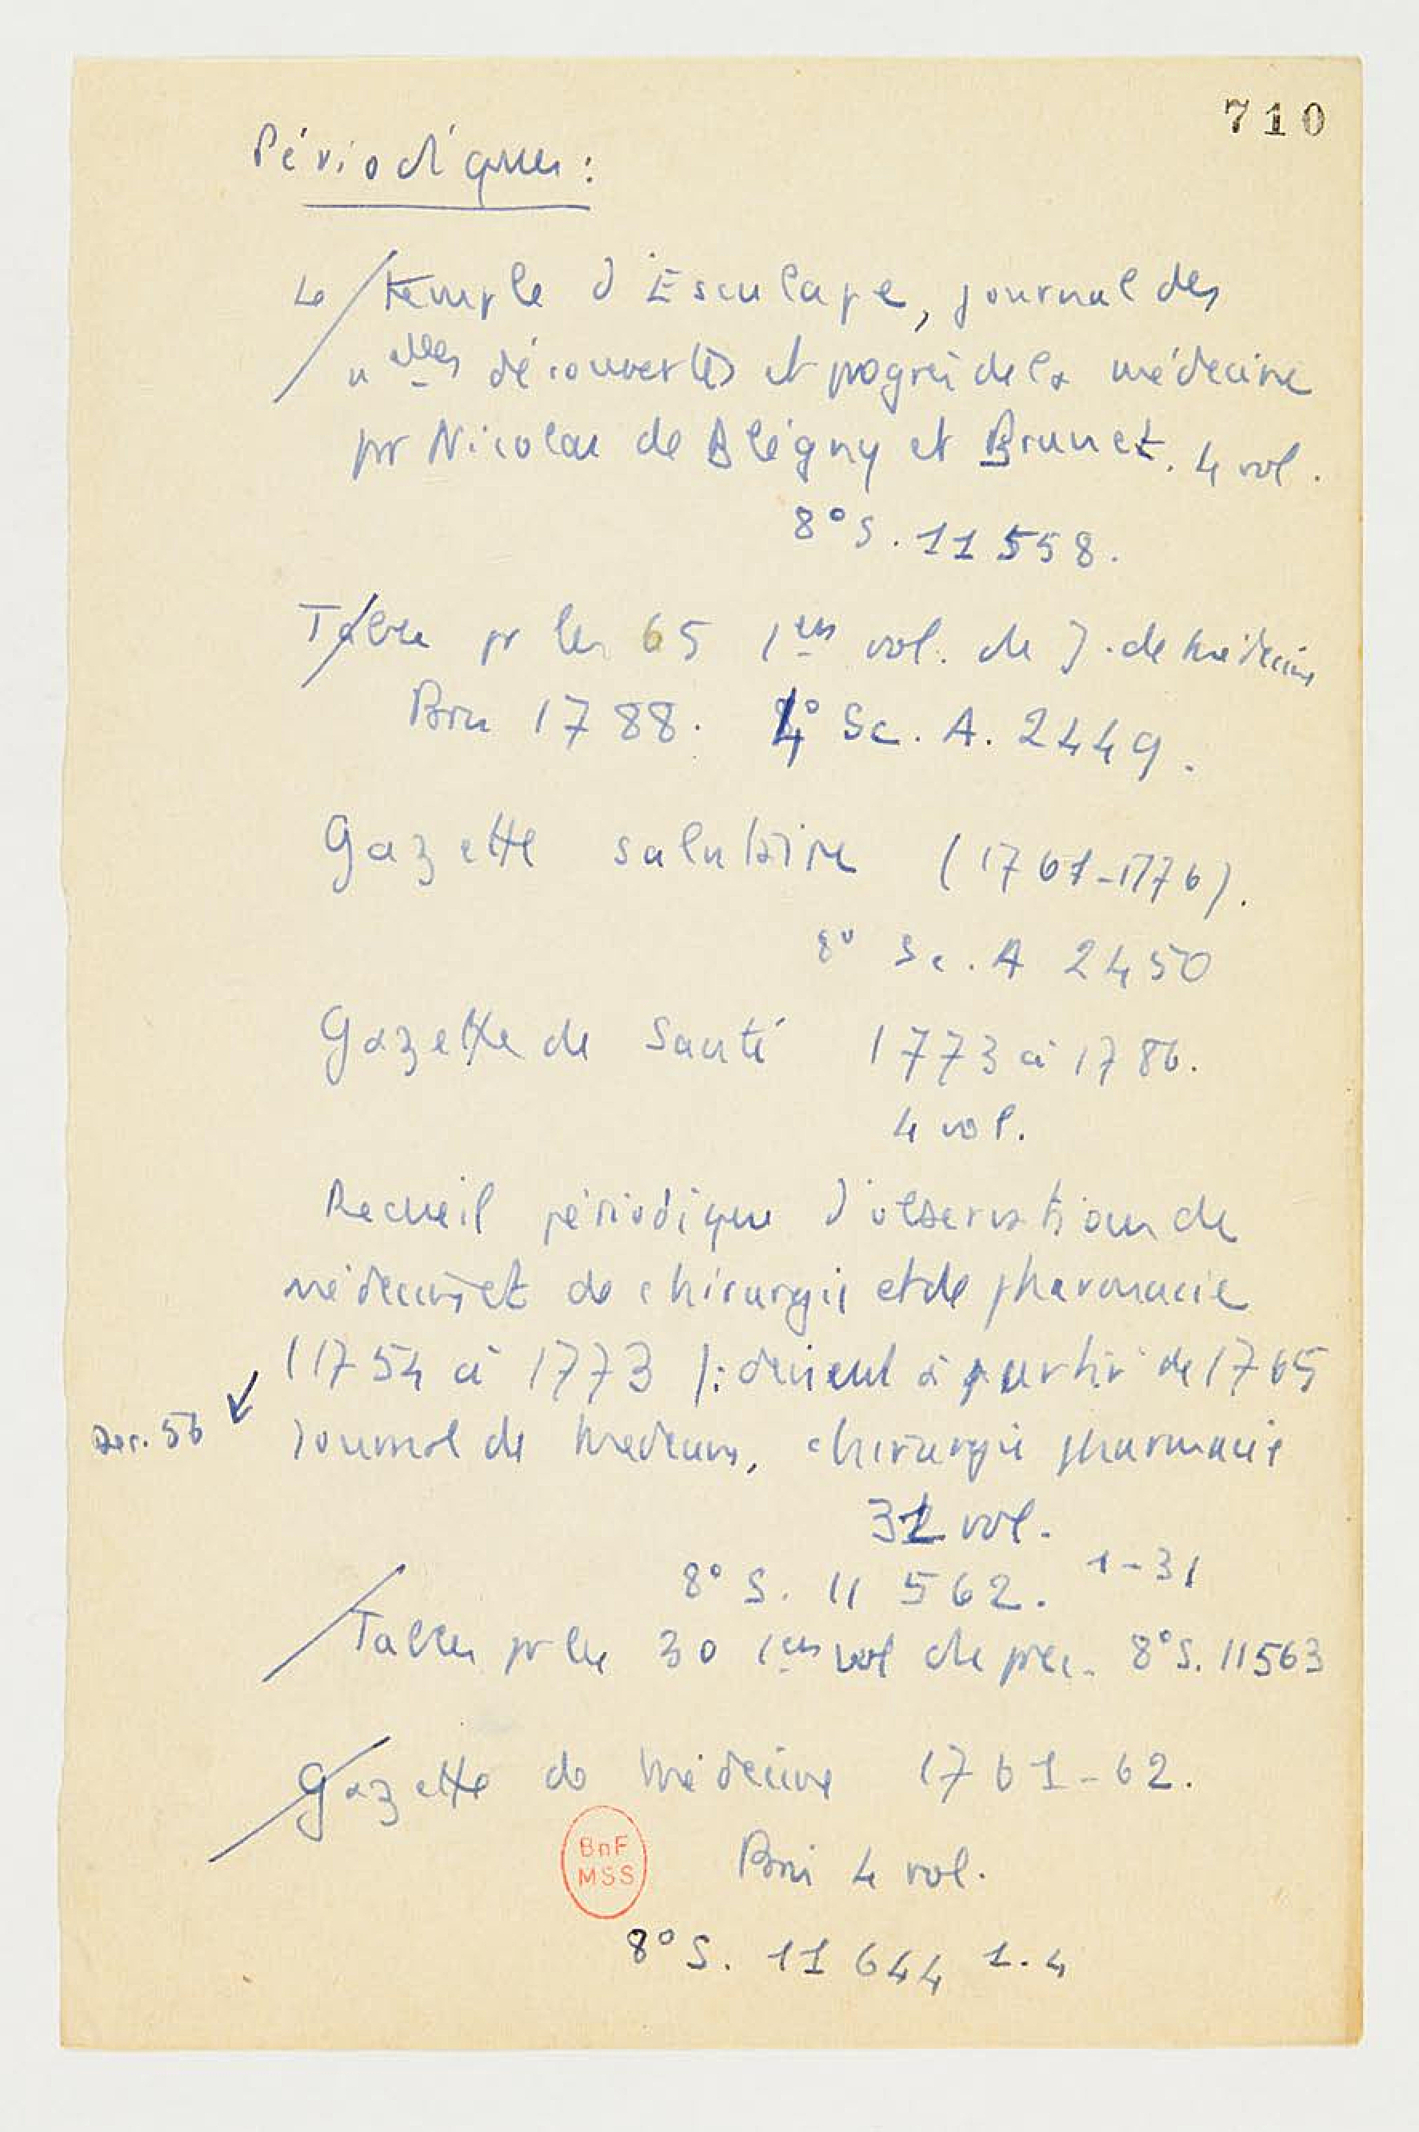 710
Périodiques :
Le Temple d'Esculape, journal des
nelles découvertes et progrès de la médecine
pr Nicolas de Blégny et Brunet. 4 vol.
8° S. 11 558.
Tables pr les 65 1ers vol. de J. de Médecine
Paris 1788. 4° Sc. A. 2449.
Gazette salutaire (1761-1776).
8° Sc. A 2450
Gazette de Santé 1773 à 1786.
4 vol.
Recueil périodique d'observations de
médecine et de chirurgie et de pharmacie
(1754 à 1773) : devient à partir de 1765
56
Journal de Médecine, chirurgie pharmacie
31 vol.
8° S. 11 562. 1-31
Tables pr les 30 1ers vol de prec. 8° S. 11563
Gazette de Médecine 1761-62.
Paris 4 vol.
BnF
MSS
8° S. 11 644 1.4